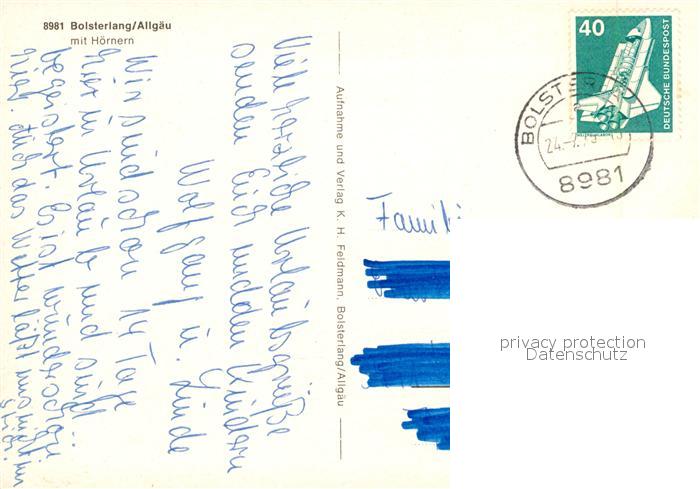 8981 Bolsterlang/Allgäu
mit Hörnern
Viele herzliche Urlaubsgrüße
senden Euch und den Kindern
Wolfgang u. Linde
Wir sind schon 14 Tage
hier in Urlaub und sind
begeistert. Es ist wunderschön
hier. Auch das Wetter läßt uns nicht im
Stich.
Aufnahme und Verlag K. H. Feldmann, Bolsterlang/Allgäu
40
DEUTSCHE BUNDESPOST
BOLSTER
24.-7.79
8981
Famili
privacy protection
Datenschutz